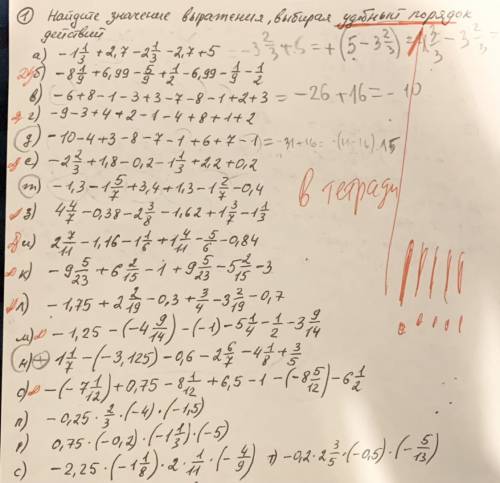 ① Найдите значение выражения, выбирая удобный порядок
действий
а) -1 1/3 + 2,7 - 2 1/3 - 2,7 + 5   -3 2/3 + 5 = + (5 - 3 2/3) =
б) -8 1/9 + 6,99 - 5/9 + 1/2 - 6,99 - 1/9 - 1/2
в) -6+8-1-3+3-7-8-1+2+3 = -26+16 = -10
г) -9-3+4+2-1-4+8+1+2
д) -10-4+3-8-7-1+6+7-1 = -31+16 = -(31-16) 15
е) -2 2/3 + 1,8 - 0,2 - 1 1/3 + 2,2 + 0,2
ж) -1,3 - 1 5/7 + 3,4 + 1,3 - 1 2/7 - 0,4
в тетради
з) 4 4/7 - 0,38 - 2 3/8 - 1,62 + 1 3/7 - 1 1/3
и) 2 7/11 - 1,16 - 1 1/6 + 1 4/11 - 5/6 - 0,84
к) -9 5/23 + 6 2/15 - 1 + 9 5/23 - 5 2/15 - 3
л) -1,75 + 2 2/19 - 0,3 + 3/4 - 3 2/19 - 0,7
м) -1,25 - (-4 9/14) - (-1) - 5 1/4 - 1/2 - 3 9/14
н) 1 1/7 - (-3,125) - 0,6 - 2 6/7 - 4 1/8 + 3/5
о) -(-7 1/12) + 0,75 - 8 1/12 + 6,5 - 1 - (-8 5/12) - 6 1/2
п) -0,25 · 2/3 · (-4) · (-1,5)
р) 0,75 · (-0,2) · (-1 1/3) · (-5)
с) -2,25 · (-1 1/8) · 2 · 1/11 · (-4/9)   т) -0,2 · 2 3/5 · (-0,5) · (-5/13)